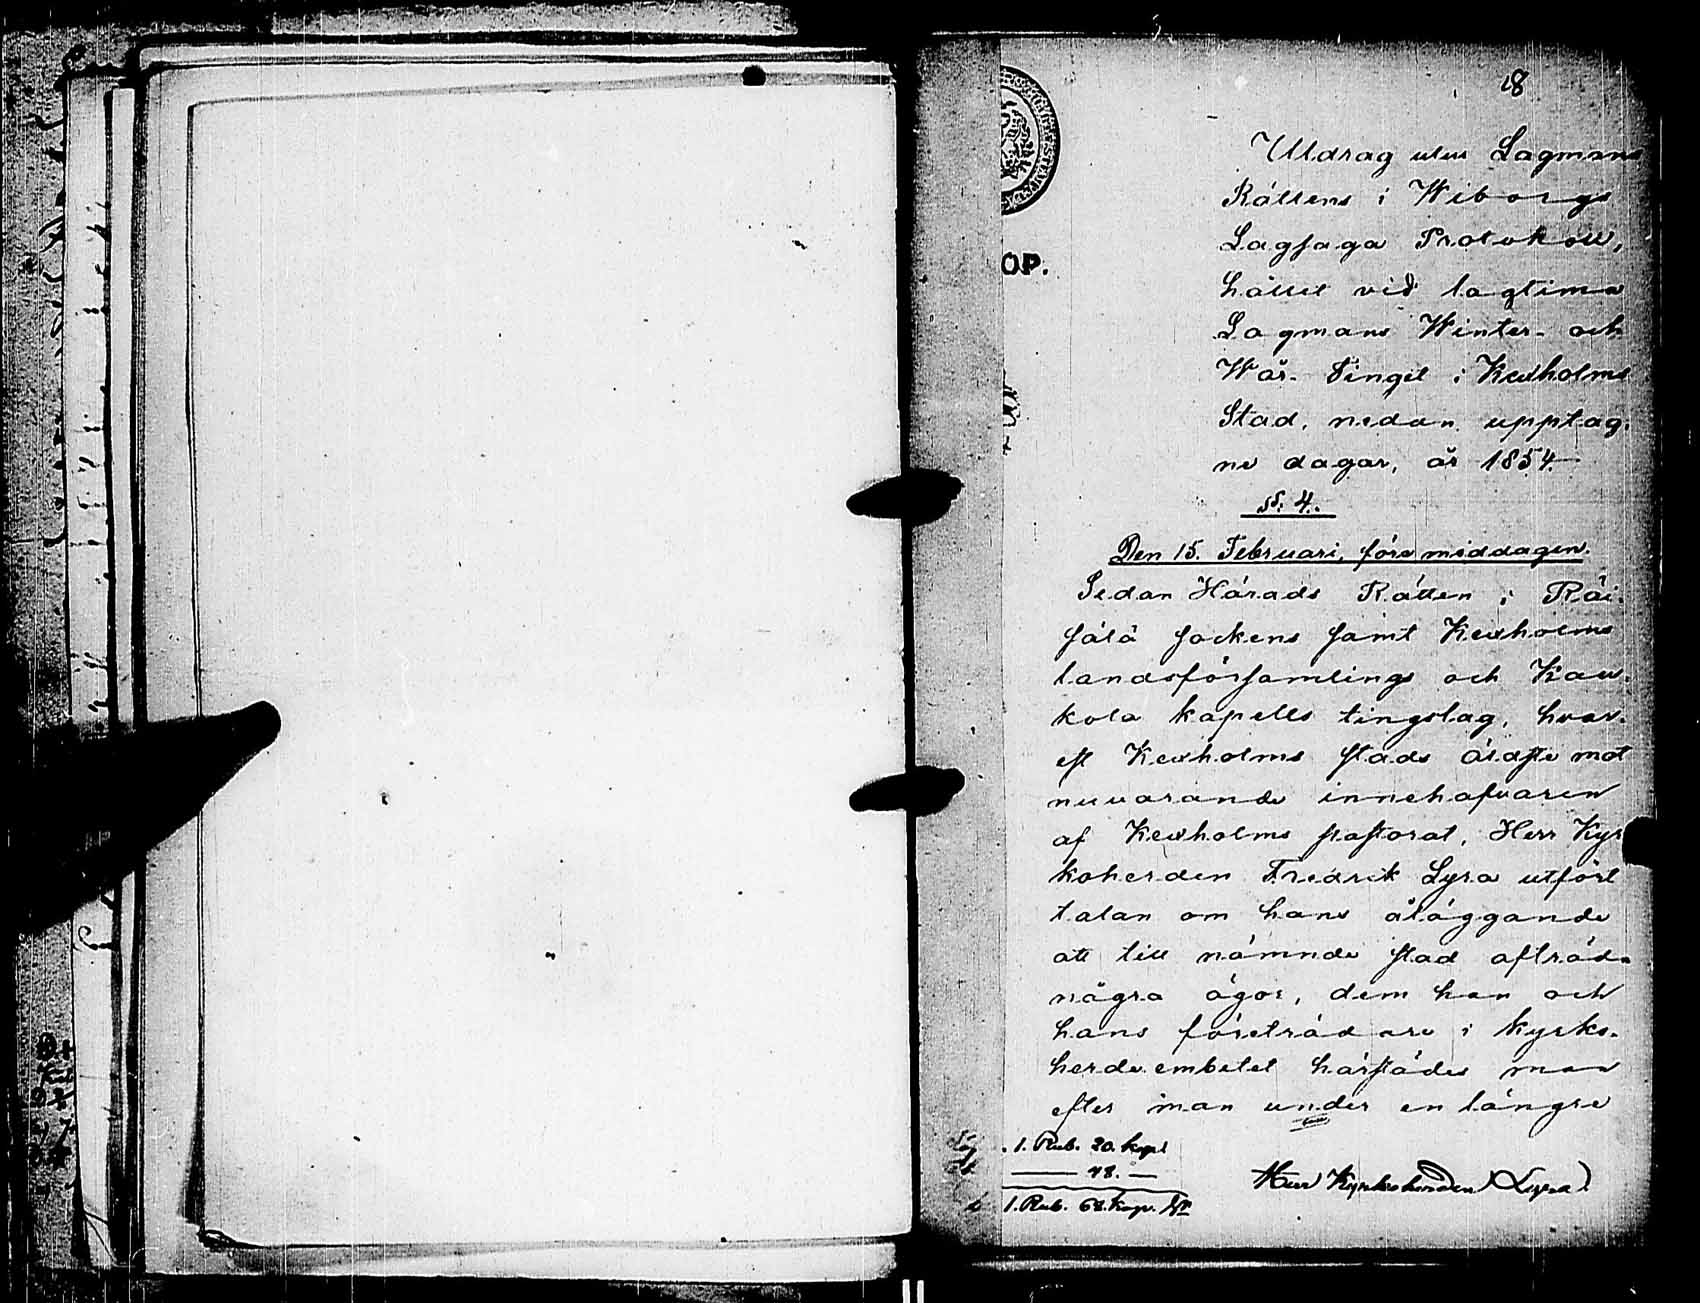 18
Utdrag utur Lagmans
Rättens i Wiborgs
Lagsaga Protokoll,
hållet vid lagtima
Lagmans Winter- och
Wår- Tinget i Kexholms
Stad, nedan upptag-
ne dagar, år 1854.
§§. 4.
Den 15. Februari, före middagen.
Sedan Härads Rätten i Räi-
sälä sockens samt Kexholms
landsförsamlings och Kau-
kola kapells tingslag, hvar-
est Kexholms stads
 mot
nuvarande innehafvaren
af Kexholms pastorat, Herr Kyr
koherden Fredrik Lyra utfört
talan om hans åläggande
att till nämnde stad afträda
några ägor, dem han och
hans företrädare i kyrko-
herde embetet härstädes man
efter man under en längre
OP.
1. Rub. 20. kop
48. —
1. Rub. 68. kop. Sr
Herr Kyrkoherden Lyra.